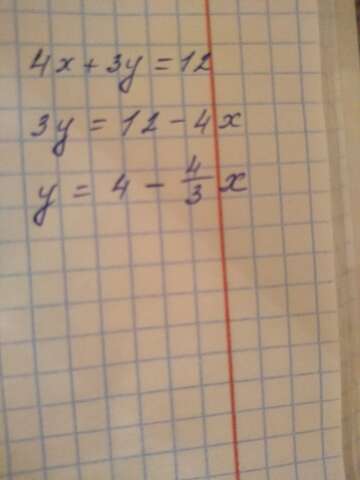 4x + 3y = 12
3y = 12 - 4x
y = 4 - 4/3 x